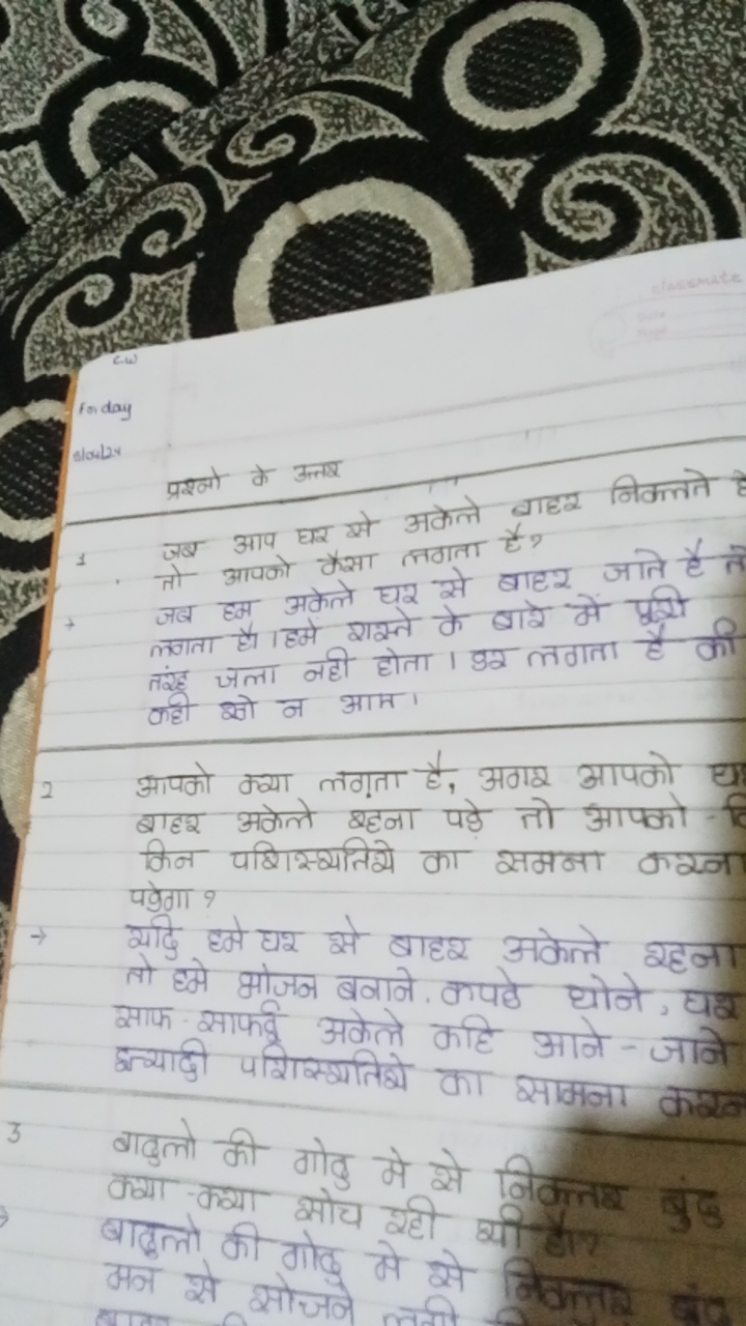 classmate
C.W
प्रश्नो के उत्तर
1 जब आप घर से अकेले बाहर निकलते है
तो आपको कैसा लगता है?
→ जब हम अकेले घर से बाहर जाते है तो
लगता है। हमे रास्ते के बारे में पूरी
तरह पता नही होता। डर लगता है की
कही खो न जाम।
2 आपको क्या लगता है, अगर आपको घर
बाहर अकेले रहना पड़े तो आपको
किन परिास्थतिये का समना करना
पड़ेगा?
→ यदि हमे घर से बाहर अकेले रहना
तो हमे भोजन बनाने, कपडे धोने, घर
साफ-साफई अकेले कहि आने-जाने
इत्यादी परिास्थतिये का सामना करन
3 बादुलो की गोदु मे से निकलर बुंदु
क्या-क्या सोच रही थी है।?
बादुलो की गोदु मे से निकलर बुंदु
मन से सोजने लगी